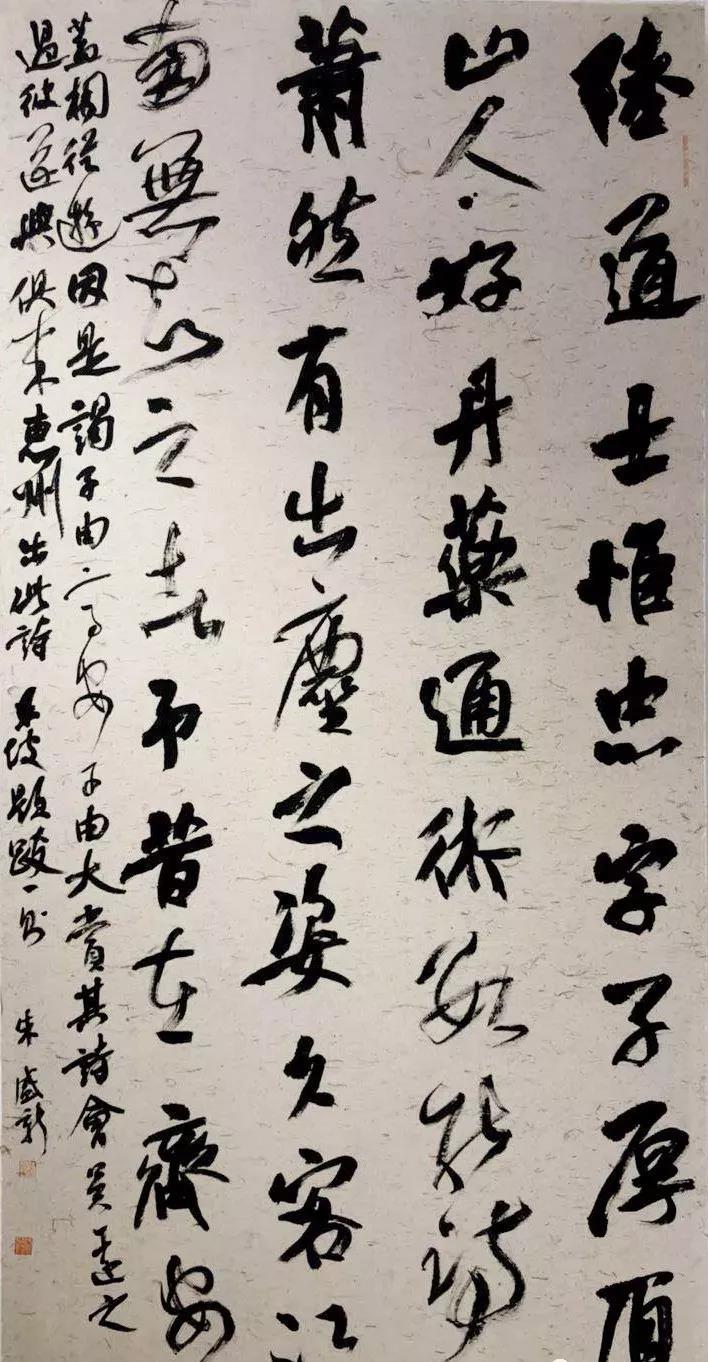 陸道士惟忠字子厚眉
山人好丹藥通術數能詩
蕭然有出塵之姿久客江
南無知之者予昔在齊安
蓋相從遊因是謁子由高安子由大賞其詩會吳遠之
過彼遂與俱來惠州出此詩 東坡題跋一則 朱盛新